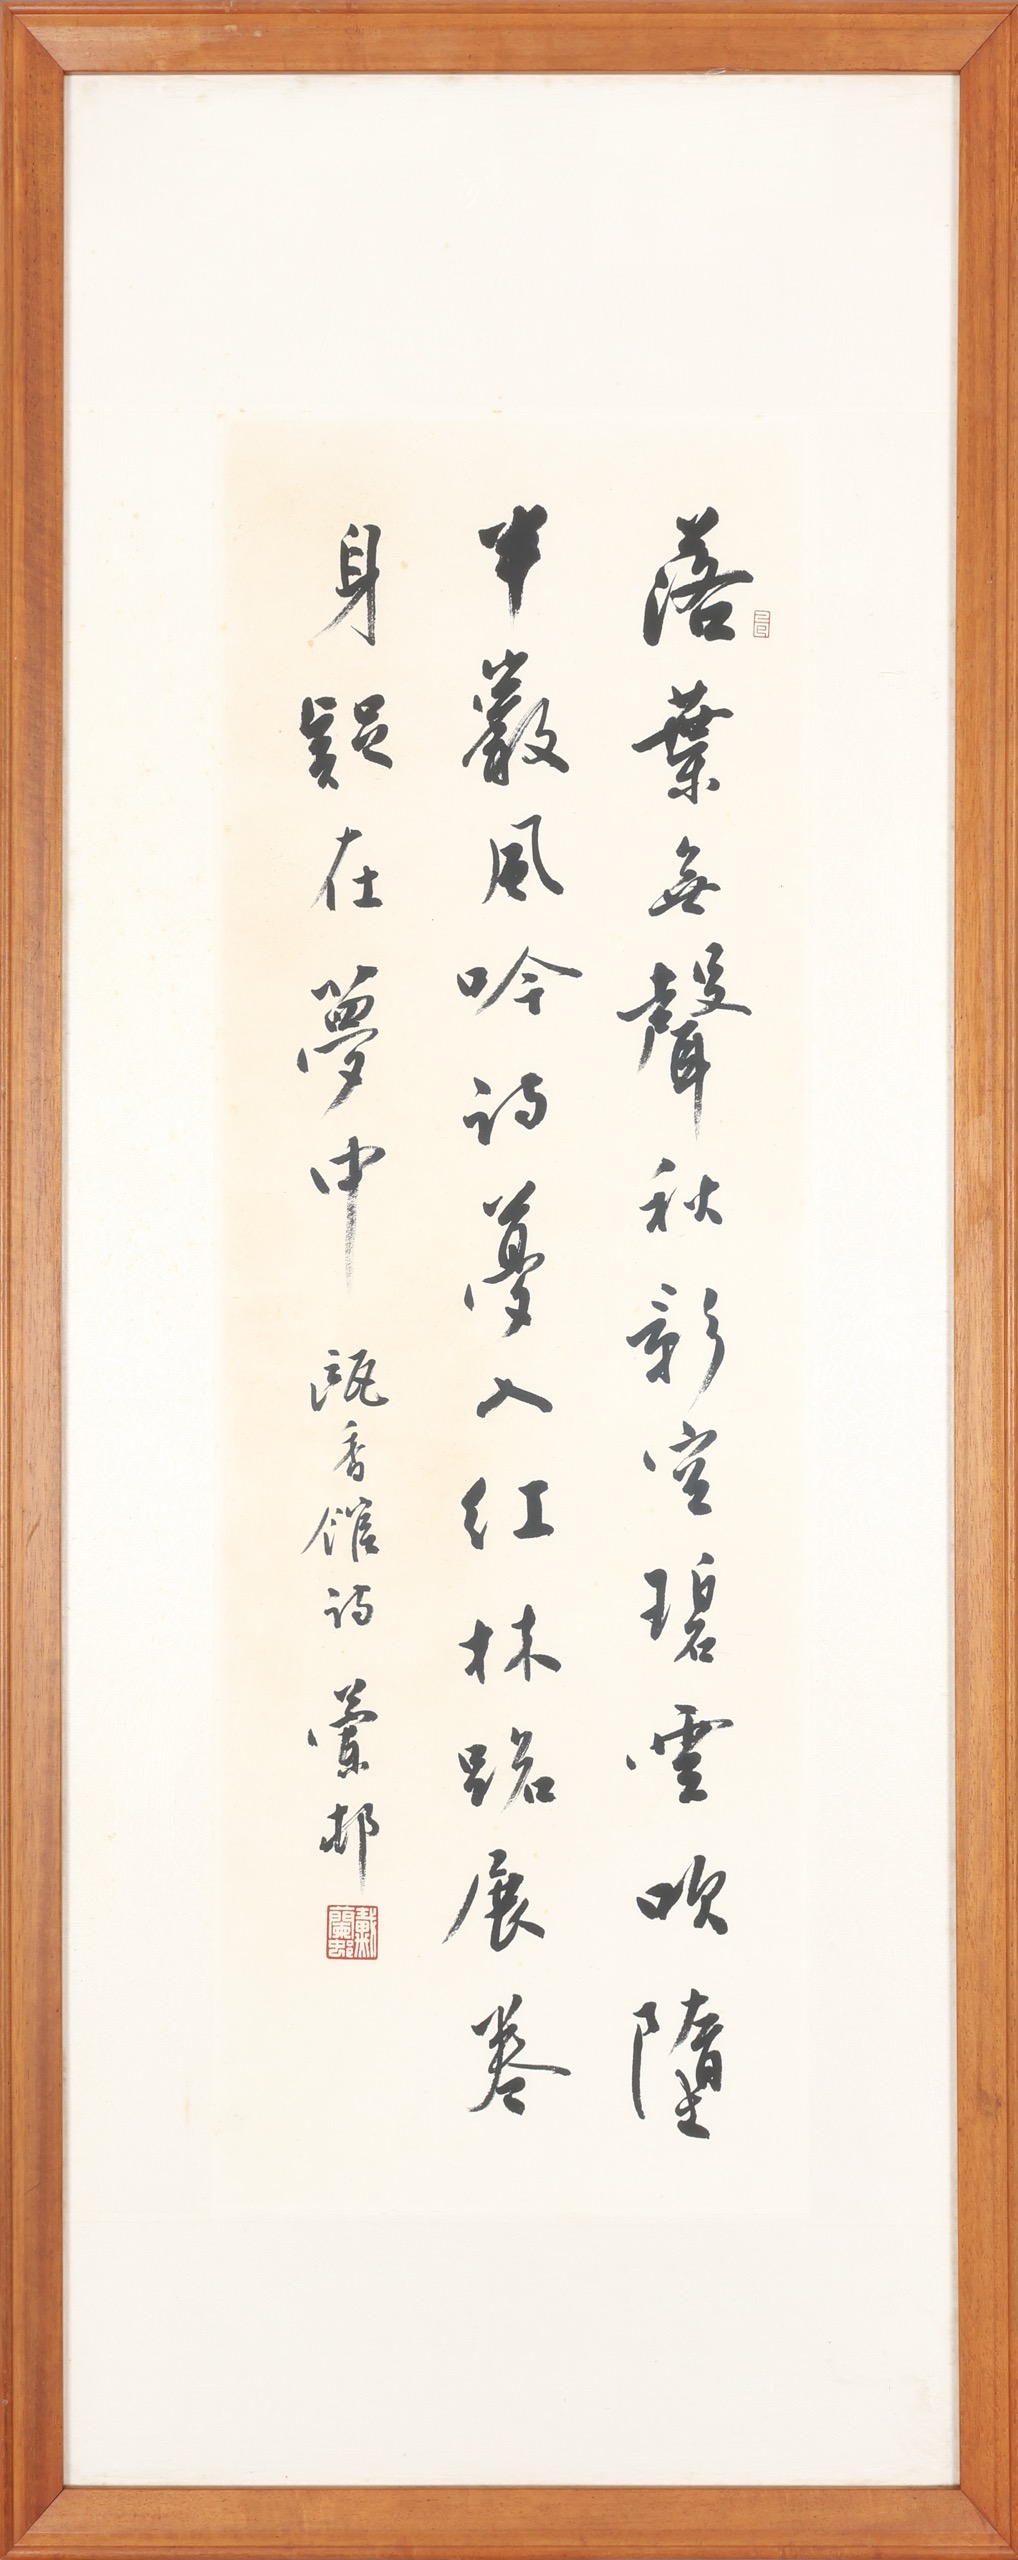 落葉無聲秋影空碧雲吹墮
半巖風吟詩夢入紅林路展卷
身疑在夢中
甌香館詩 蘭邨
戴蘭邨